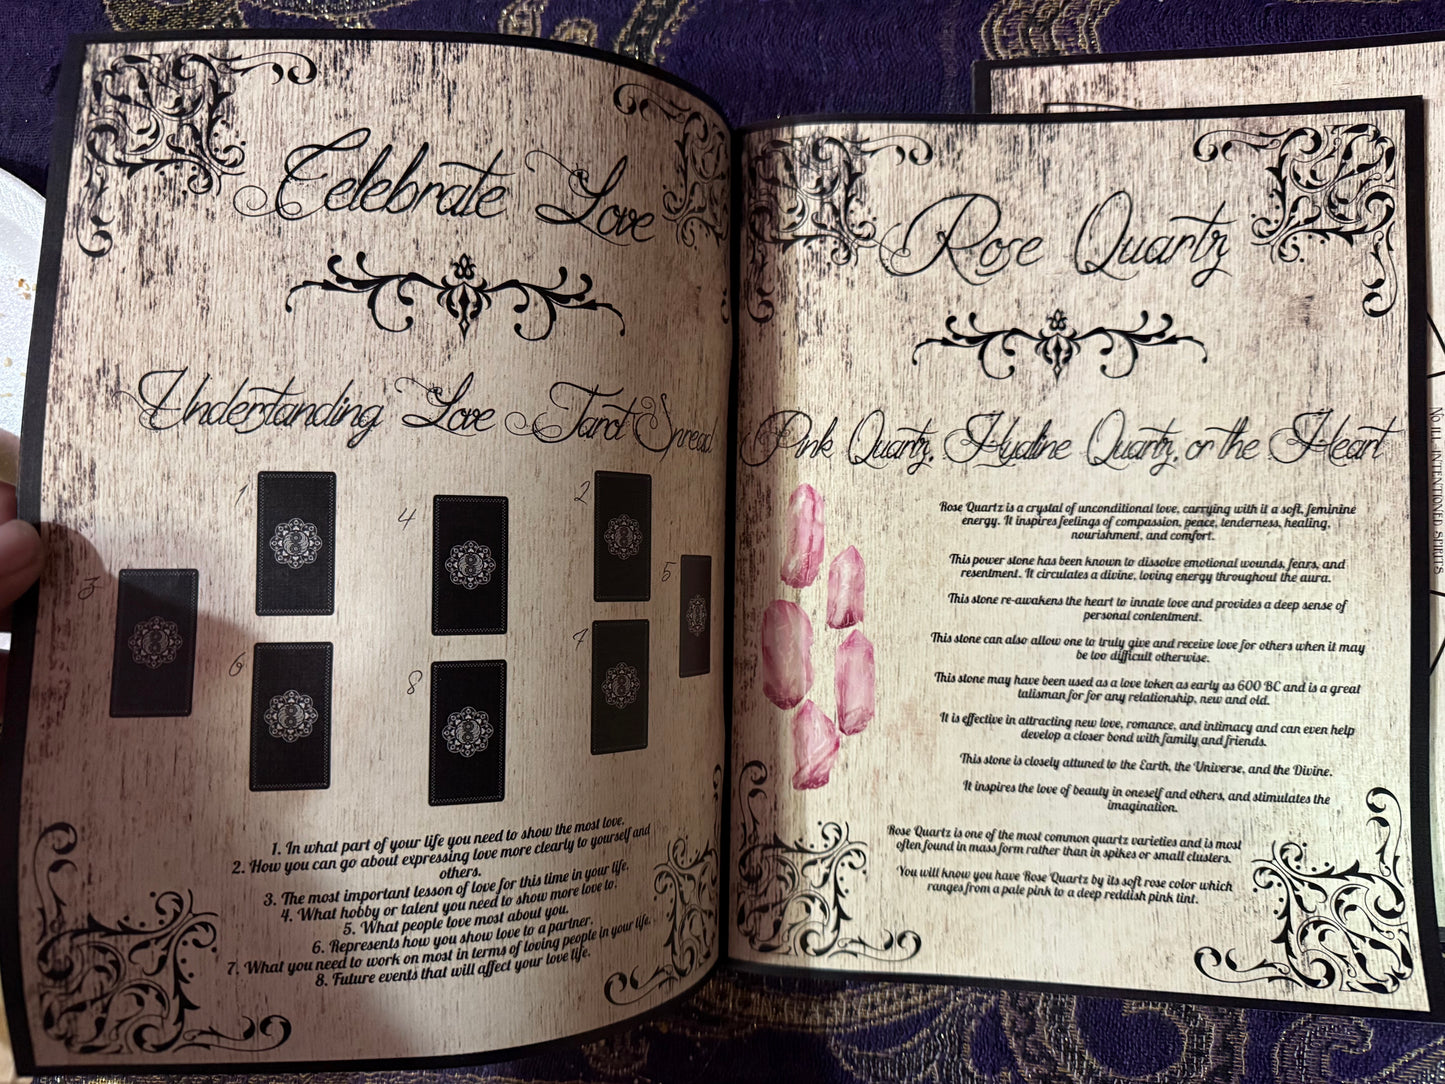 Celebrate Love
Understanding Love Tarot Spread
1
4
2
3
5
6
8
7
1. In what part of your life you need to show the most love.
2. How you can go about expressing love more clearly to yourself and
others.
3. The most important lesson of love for this time in your life.
4. What hobby or talent you need to show more love to.
5. What people love most about you.
6. Represents how you show love to a partner.
7. What you need to work on most in terms of loving people in your life.
8. Future events that will affect your love life.
Rose Quartz
Pink Quartz, Hyaline Quartz, or the Heart
Rose Quartz is a crystal of unconditional love, carrying with it a soft, feminine
energy. It inspires feelings of compassion, peace, tenderness, healing,
nourishment, and comfort.
This power stone has been known to dissolve emotional wounds, fears, and
resentment. It circulates a divine, loving energy throughout the aura.
This stone re-awakens the heart to innate love and provides a deep sense of
personal contentment.
This stone can also allow one to truly give and receive love for others when it may
be too difficult otherwise.
This stone may have been used as a love token as early as 600 BC and is a great
talisman for for any relationship, new and old.
It is effective in attracting new love, romance, and intimacy and can even help
develop a closer bond with family and friends.
This stone is closely attuned to the Earth, the Universe, and the Divine.
It inspires the love of beauty in oneself and others, and stimulates the
imagination.
Rose Quartz is one of the most common quartz varieties and is most
often found in mass form rather than in spikes or small clusters.
You will know you have Rose Quartz by its soft rose color which
ranges from a pale pink to a deep reddish pink tint.
INTENTIONED SPIRITS